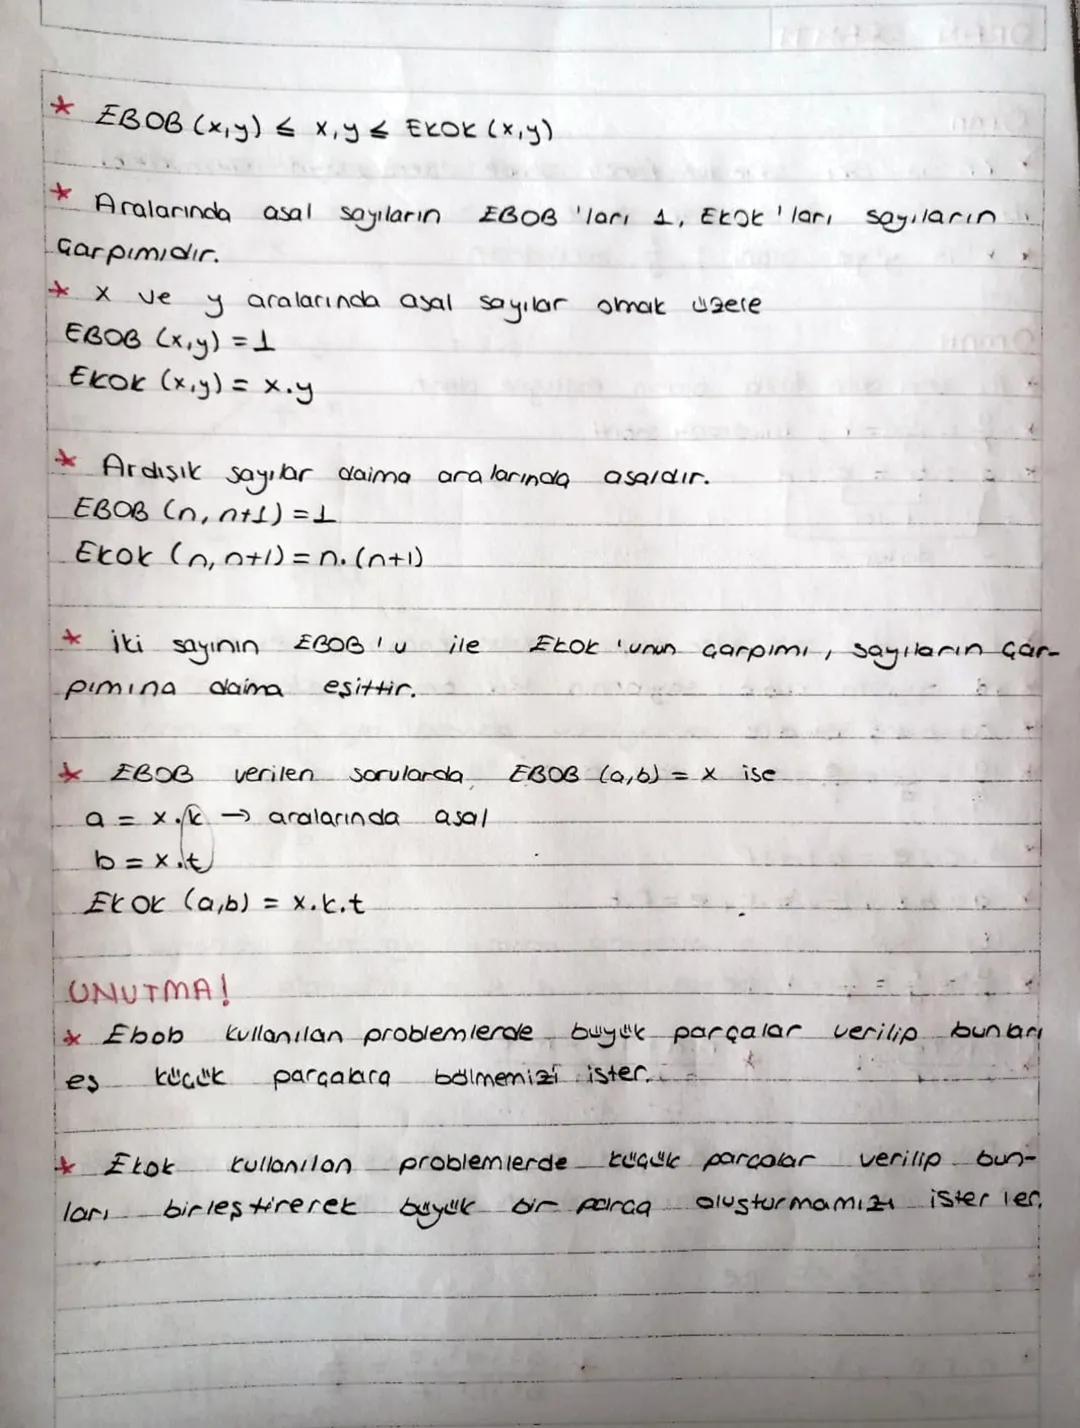 * EBOB (x,y) ≤ x,y ≤ EKOK (x,y)
* Aralarında asal sayıların EBOB 'ları 1, EKOK 'ları sayıların
çarpımıdır.
* x ve y aralarında asal sayılar olmak üzere
EBOB (x,y) = 1
EKOK (x,y) = x.y
* Ardışık sayılar daima aralarında asaldır.
EBOB (n, n+1) = 1
EKOK (n, n+1) = n. (n+1)
* İki sayının EBOB 'u ile EKOK 'unun çarpımı, sayıların çar-
pımına daima eşittir.
* EBOB verilen sorularda EBOB (a,b) = x ise
a = x.k → aralarında asal
b = x.t
EKOK (a,b) = x.k.t
UNUTMA!
* Ebob kullanılan problemlerde büyük parçalar verilip bunları
eş küçük parçalara bölmemizi ister.
* Ekok kullanılan problemlerde küçük parçalar verilip bun-
ları birleştirerek büyük bir parça oluşturmamızı isterler.